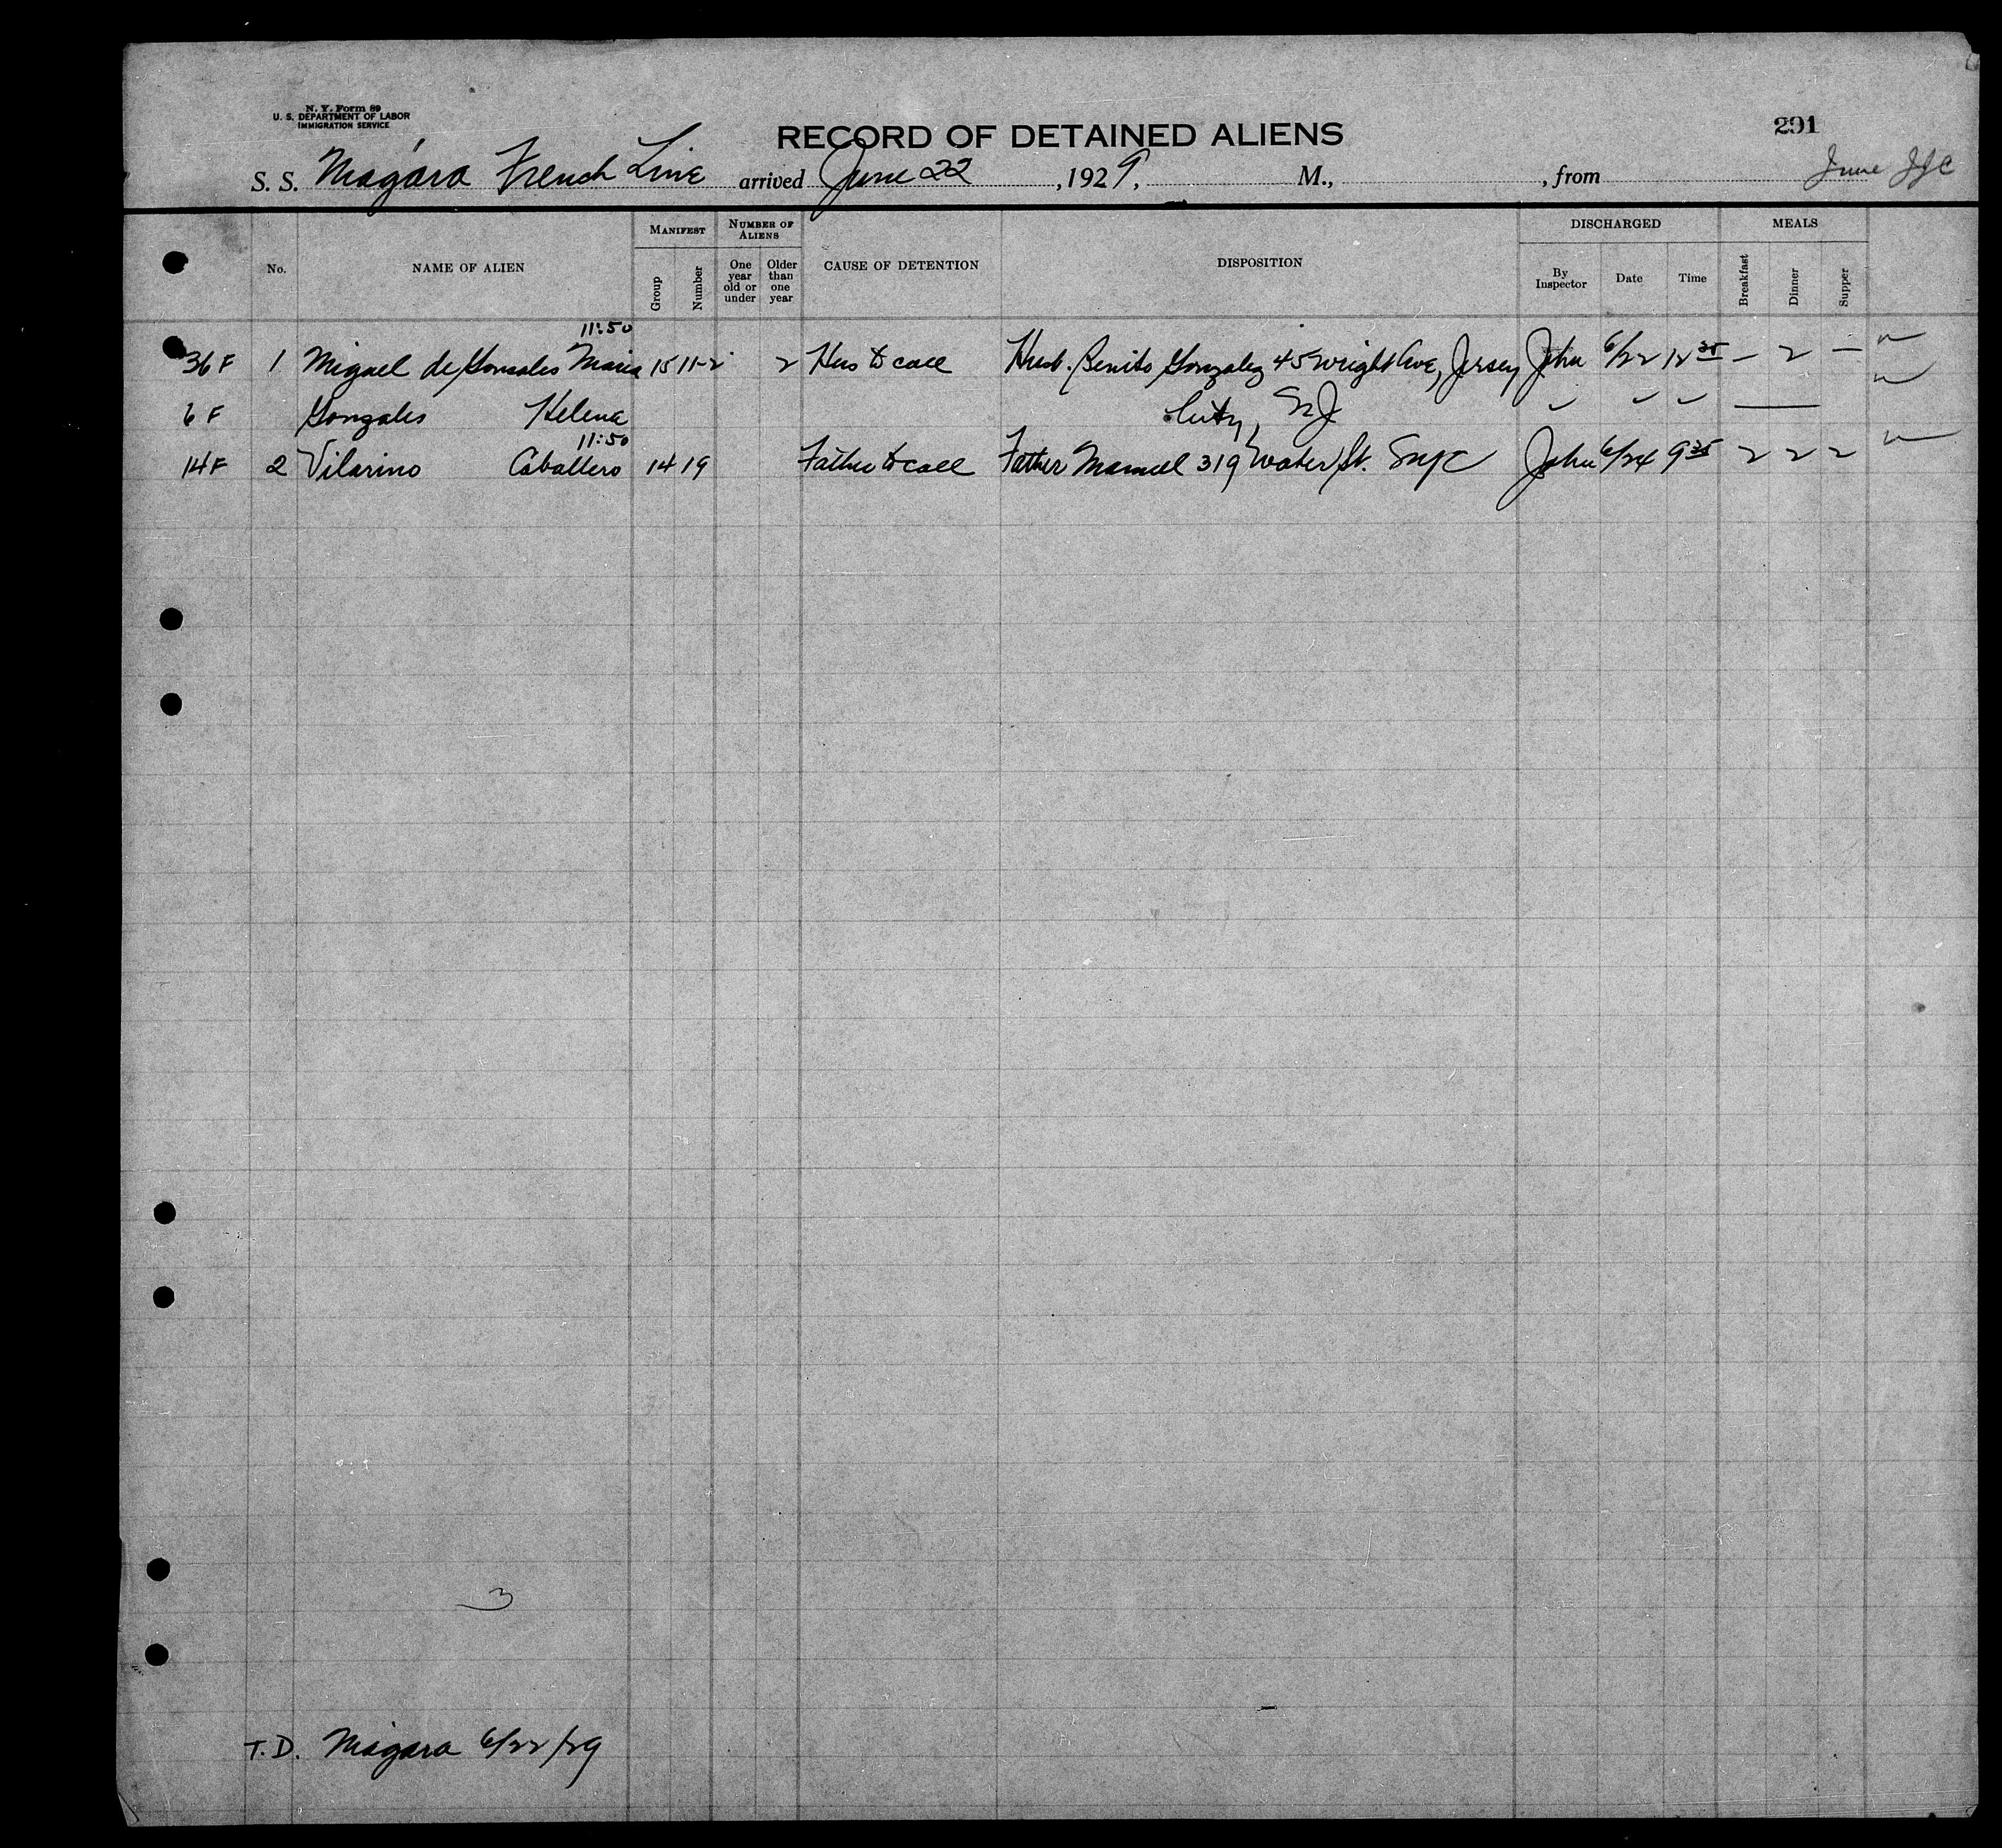 N. Y. Form 89
U. S. DEPARTMENT OF LABOR
IMMIGRATION SERVICE
RECORD OF DETAINED ALIENS
291
S. S. Niagara French Line arrived June 22, 1929, M., , from
June
MANIFEST NUMBER OF ALIENS DISCHARGED MEALS
No. NAME OF ALIEN Group Number One year old or under Older than one year CAUSE OF DETENTION DISPOSITION By Inspector Date Time Breakfast Dinner Supper
11:50
36 F 1 Miguel de Gonzales Maria 15 11-2 2 Hus to call Husb. Benito Gonzalez 45 Wright Ave, Jersey John 6/22 12 35 – 2 –
6 F Gonzales Helena City, NJ
11:50
14 F 2 Vilarino Caballero 14 19 Father to call Father Manuel 319 Water St. NYC John 6/24 9 35 2 2 2
3
T.D. Niagara 6/22/29